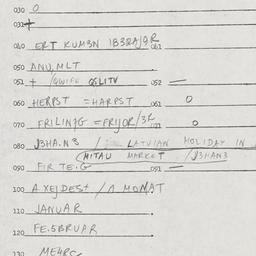 030 0
031 +
040 ERT KUM3N 041
050 ANU,MLT
051 + /QWIFE 052 —
060 HERPST = HARPST 061 0
070 FRILINJG = FRIJOR/3R 071 0
080 J3HA.N3 / LATVIAN HOLIDAY IN
(MITAU MARKET /J3HAN3
090 FIR TE.G 091 —
100 A XEJDES+ / A MONAT
110 JANUAR
120 FE.5BRUAR
130